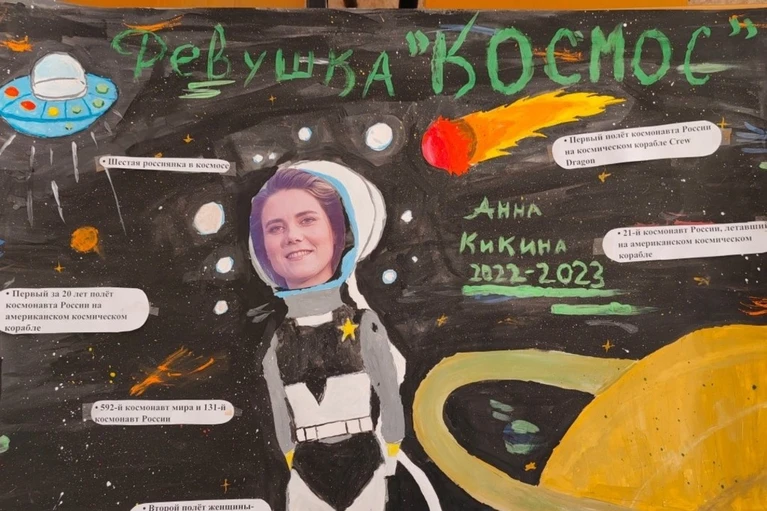 Девушка "Космос"
• Первый полёт космонавта России
на космическом корабле Crew
Dragon
• Шестая россиянка в космосе
Анна
Кикина
2022-2023
• 21-й космонавт России, летавши
на американском космическом
корабле
• Первый за 20 лет полёт
космонавта России на
американском космическом
корабле
• 592-й космонавт мира и 131-й
космонавт России
• Второй полёт женщины-